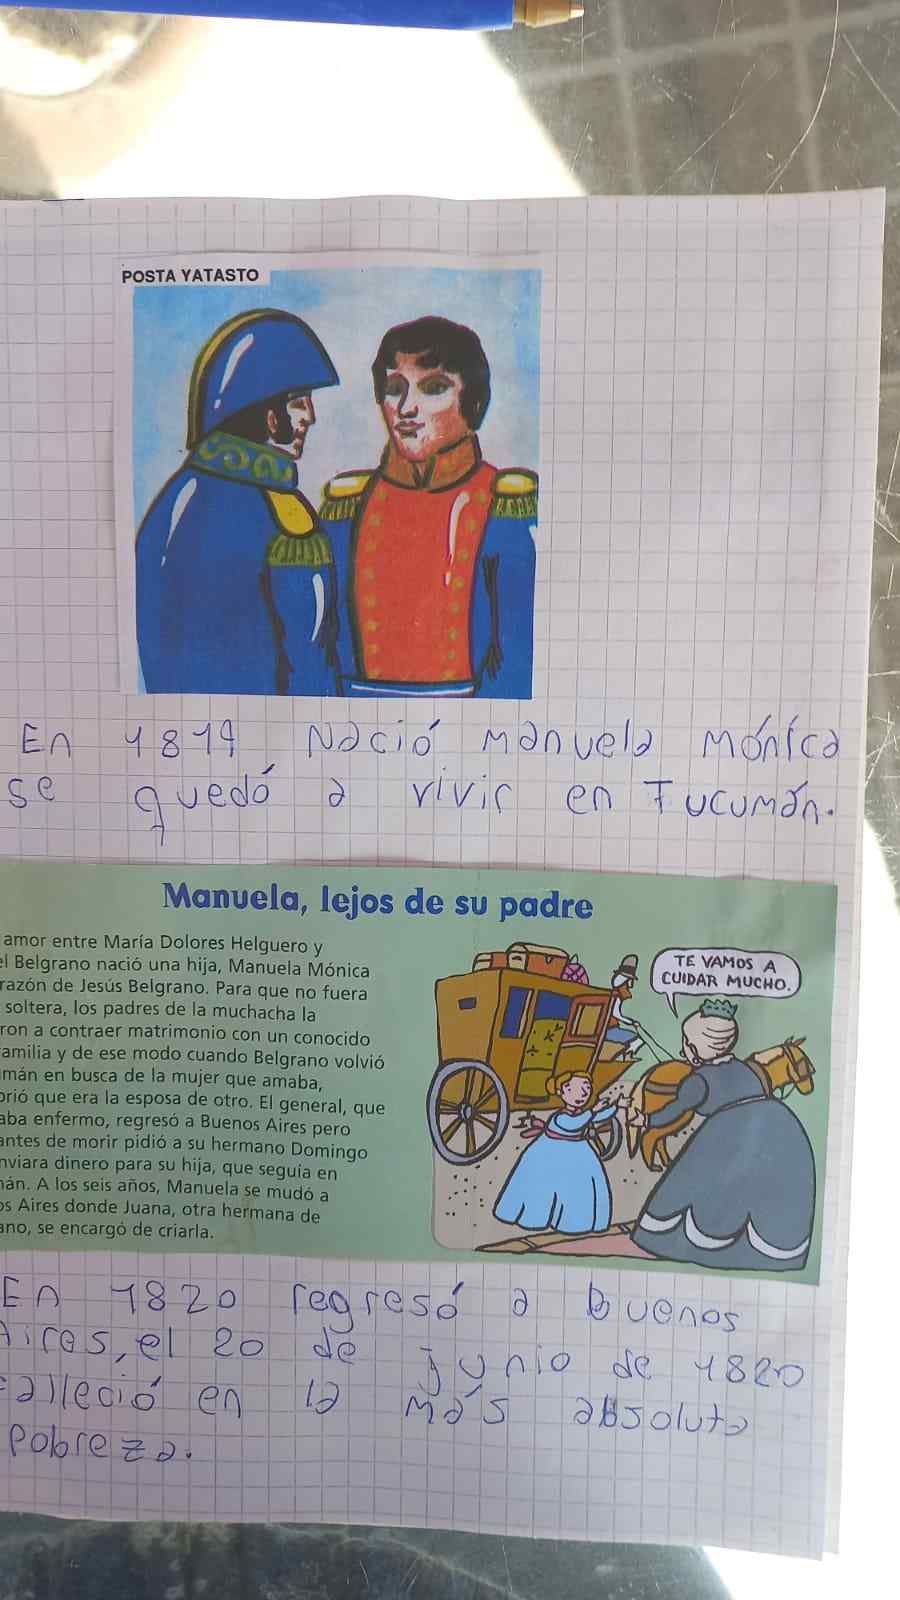 POSTA YATASTO
En 1819 Nació Manuela Mónica
se quedó a vivir en Tucumán.
Manuela, lejos de su padre
amor entre María Dolores Helguero y
el Belgrano nació una hija, Manuela Mónica
razón de Jesús Belgrano. Para que no fuera
soltera, los padres de la muchacha la
ron a contraer matrimonio con un conocido
familia y de ese modo cuando Belgrano volvió
mán en busca de la mujer que amaba,
brió que era la esposa de otro. El general, que
aba enfermo, regresó a Buenos Aires pero
antes de morir pidió a su hermano Domingo
nviara dinero para su hija, que seguía en
mán. A los seis años, Manuela se mudó a
os Aires donde Juana, otra hermana de
ano, se encargó de criarla.
TE VAMOS A
CUIDAR MUCHO.
En 1820 regresó a Buenos
Aires, el 20 de junio de 1820
falleció en la más absoluta
pobreza.